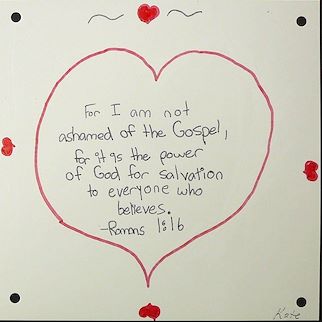 For I am not
ashamed of the Gospel,
for it is the power
of God for salvation
to everyone who
believes.
-Romans 1:16
Kate